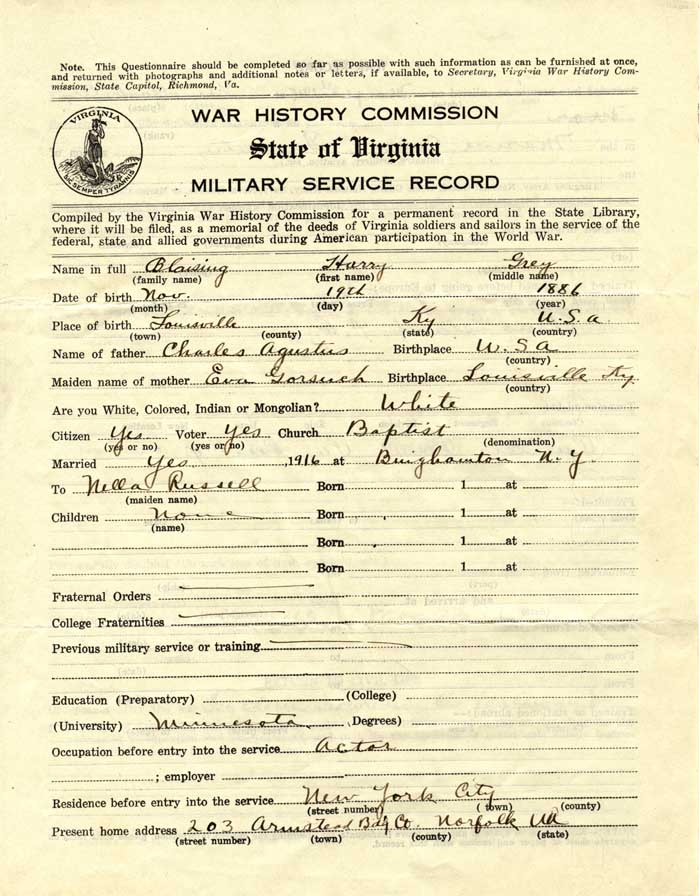 Note. This Questionnaire should be completed so far as possible with such information as can be furnished at once,
and returned with photographs and additional notes or letters, if available, to Secretary, Virginia War History Com-
mission, State Capitol, Richmond, Va.
WAR HISTORY COMMISSION
VIRGINIA
State of Virginia
SIC SEMPER TYRANNIS
MILITARY SERVICE RECORD
Compiled by the Virginia War History Commission for a permanent record in the State Library,
where it will be filed, as a memorial of the deeds of Virginia soldiers and sailors in the service of the
federal, state and allied governments during American participation in the World War.
Name in full Blaising Harry Grey
(family name) (first name) (middle name)
Date of birth Nov. 19th 1886
(month) (day) (year)
Place of birth Louisville Ky U.S.a
(town) (county) (state) (country)
Name of father Charles Agustus Birthplace U.S.A
(country)
Maiden name of mother Eva Gorsuch Birthplace Louisville Ky
(country)
Are you White, Colored, Indian or Mongolian? White
Citizen Yes Voter Yes Church Baptist
(yes or no) (yes or no) (denomination)
Married Yes, 1916 at Binghamton N.Y.
To Nella Russell Born 1 at
(maiden name)
Children None Born 1 at
(name)
Born 1 at
Born 1 at
Fraternal Orders
College Fraternities
Previous military service or training
Education (Preparatory) (College)
(University) Minnesota (Degrees)
Occupation before entry into the service Actor
; employer
Residence before entry into the service New York City
(street number) (town) (county)
Present home address 203 Armstead Bdg Co. Norfolk Va
(street number) (town) (county) (state)